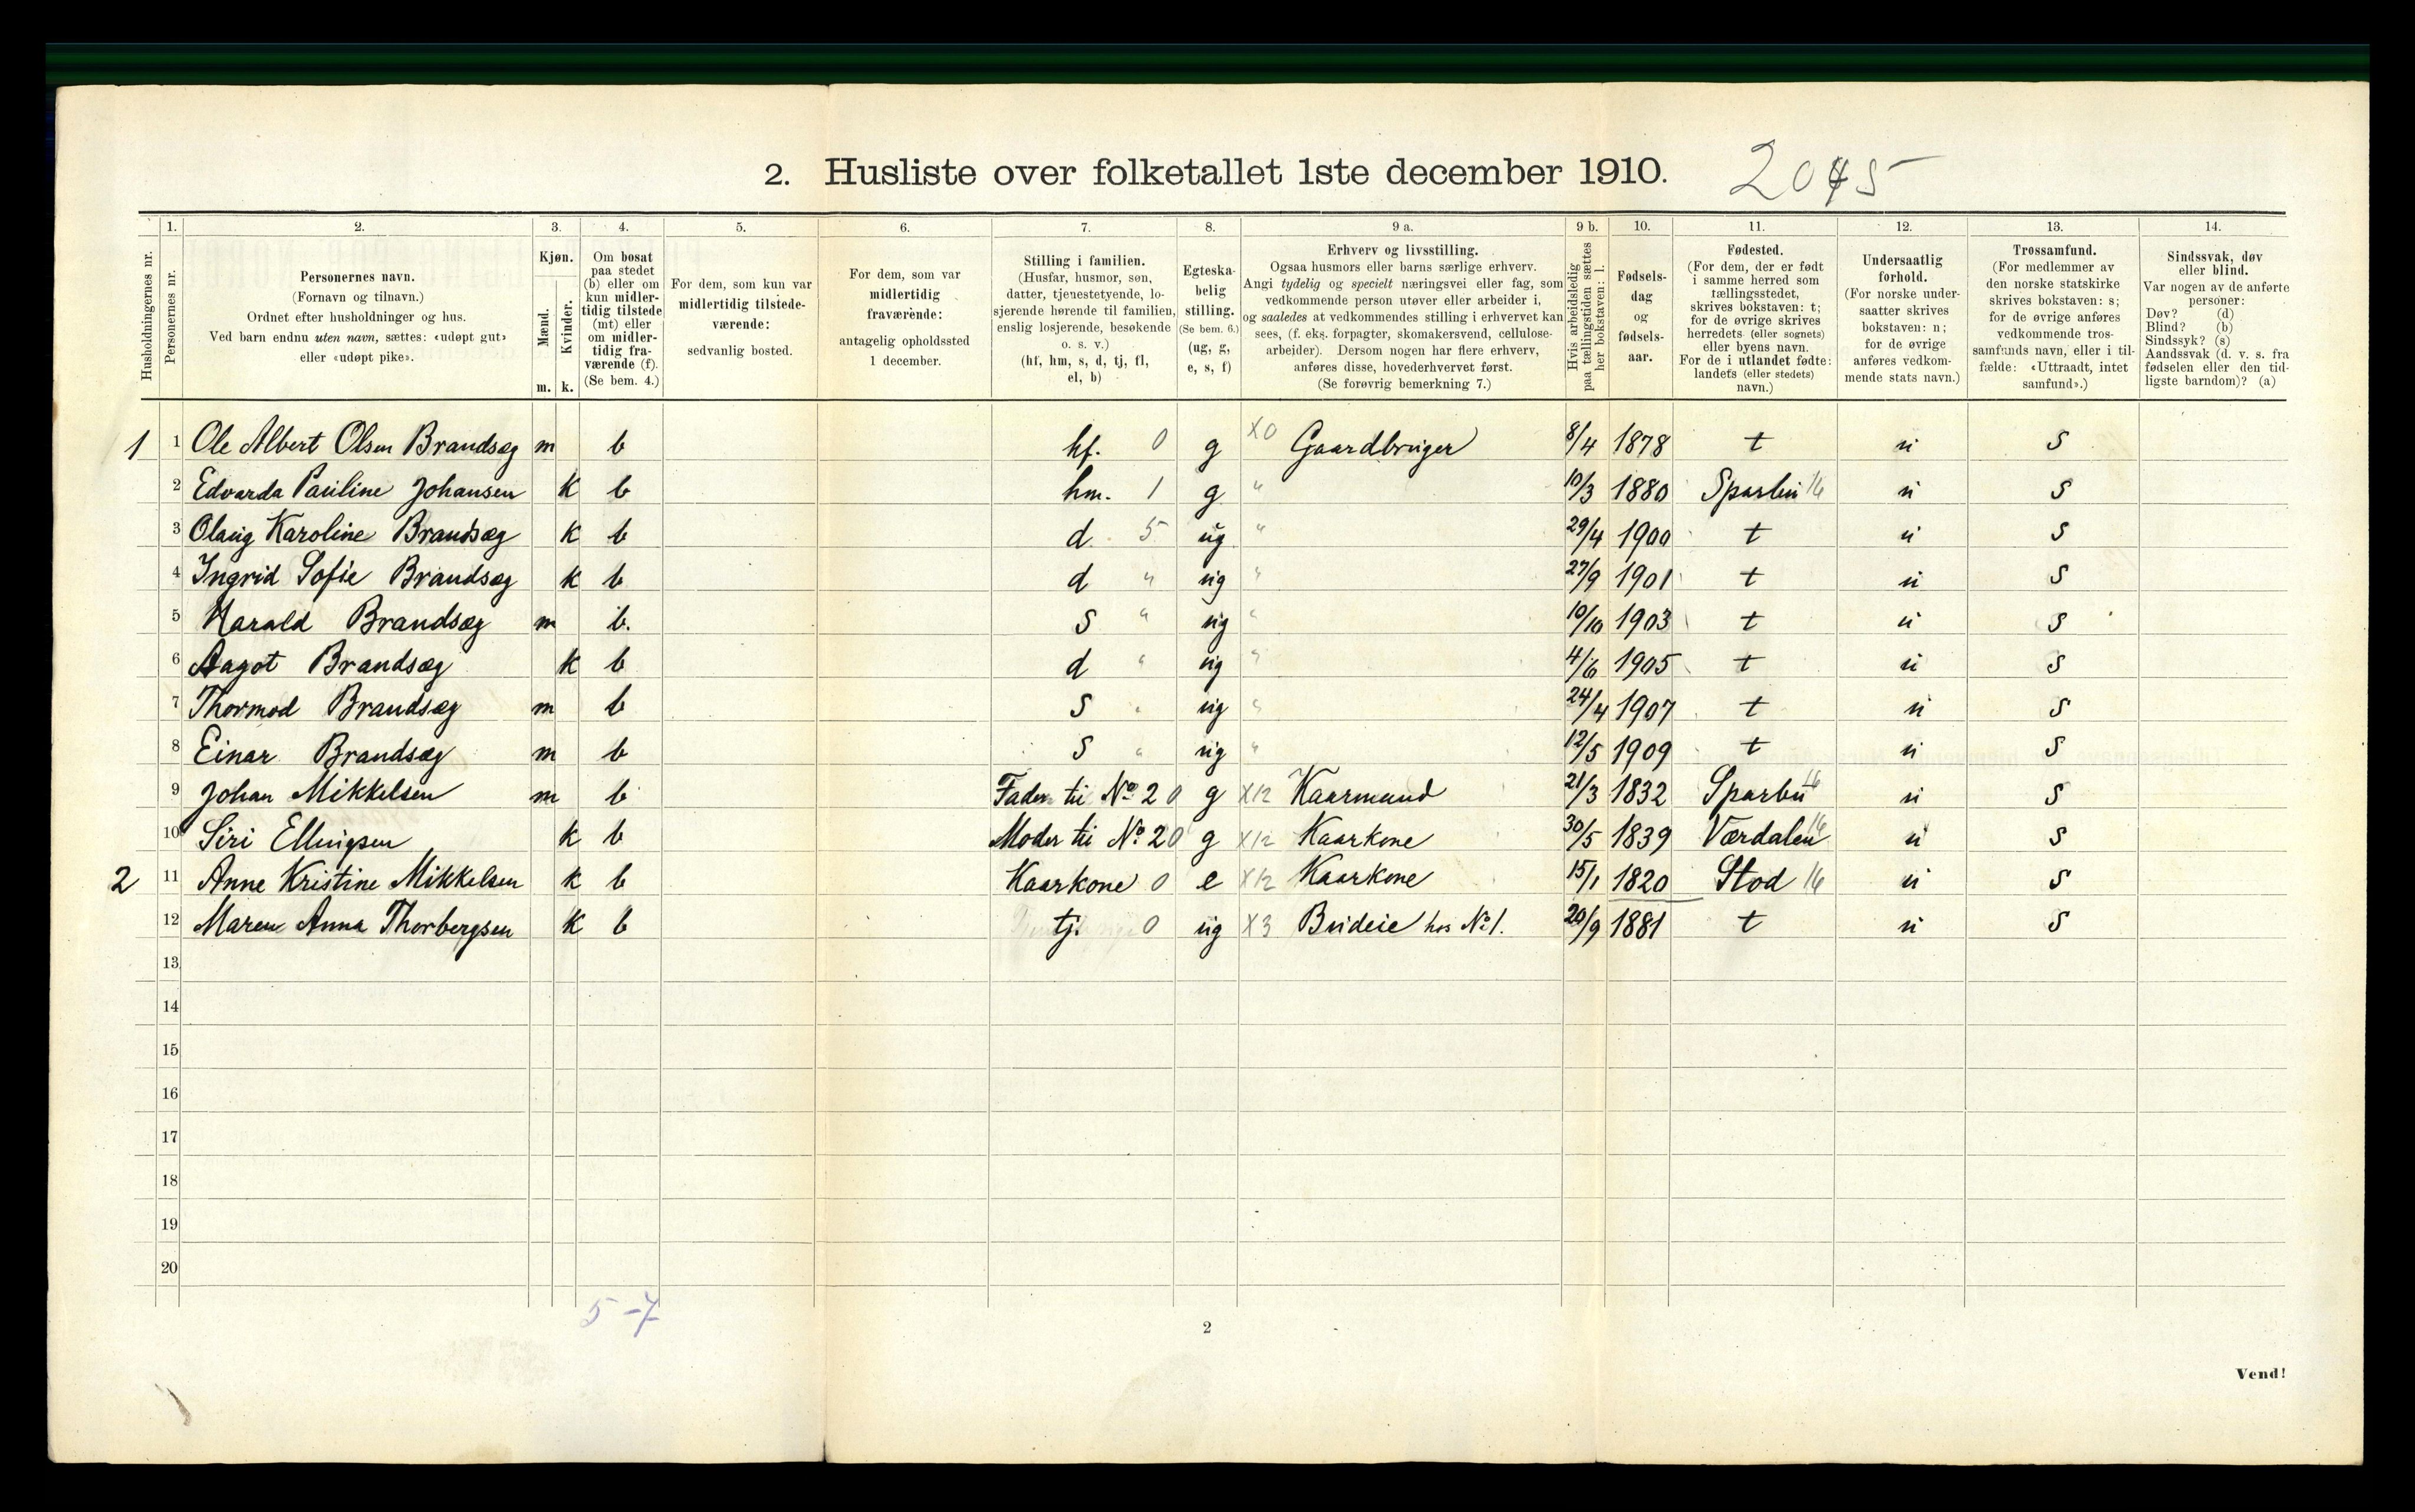 2. Husliste over folketallet 1ste december 1910. 2045
1. 2. 3. 4. 5. 6. 7. 8. 9 a. 9 b. 10. 11. 12. 13. 14.
Husholdningernes nr.
Personernes nr.
Personernes navn.
(Fornavn og tilnavn.)
Ordnet efter husholdninger og hus.
Ved barn endnu uten navn, sættes: «udøpt gut»
eller «udøpt pike».
Kjøn.
Mænd.
Kvinder.
m. k.
Om bosat
paa stedet
(b) eller om
kun midler-
tidig tilstede
(mt) eller
om midler-
tidig fra-
værende (f).
(Se bem. 4.)
For dem, som kun var
midlertidig tilstede-
værende:
sedvanlig bosted.
For dem, som var
midlertidig
fraværende:
antagelig opholdssted
1 december.
Stilling i familien.
(Husfar, husmor, søn,
datter, tjenestetyende, lo-
sjerende hørende til familien,
enslig losjerende, besøkende
o. s. v.)
(hf, hm, s, d, tj, fl,
el, b)
Egteska-
belig
stilling.
(Se bem. 6.)
(ug, g,
e, s, f)
Erhverv og livsstilling.
Ogsaa husmors eller barns særlige erhverv.
Angi tydelig og specielt næringsvei eller fag, som
vedkommende person utøver eller arbeider i,
og saaledes at vedkommendes stilling i erhvervet kan
sees, (f. eks. forpagter, skomakersvend, cellulose-
arbeider). Dersom nogen har flere erhverv,
anføres disse, hovederhvervet først.
(Se forøvrig bemerkning 7.)
Hvis arbeidsledig
paa tællingstiden sættes
her bokstaven: l.
Fødsels-
dag
og
fødsels-
aar.
Fødested.
(For dem, der er født
i samme herred som
tællingsstedet,
skrives bokstaven: t;
for de øvrige skrives
herredets (eller sognets)
eller byens navn.
For de i utlandet fødte:
landets (eller stedets)
navn.)
Undersaatlig
forhold.
(For norske under-
saatter skrives
bokstaven: n;
for de øvrige
anføres vedkom-
mende stats navn.)
Trossamfund.
(For medlemmer av
den norske statskirke
skrives bokstaven: s;
for de øvrige anføres
vedkommende tros-
samfunds navn, eller i til-
fælde: «Uttraadt, intet
samfund».)
Sindssvak, døv
eller blind.
Var nogen av de anførte
personer:
Døv? (d)
Blind? (b)
Sindssyk? (s)
Aandssvak (d. v. s. fra
fødselen eller den tid-
ligste barndom)? (a)
1 1 Ole Albert Olsen Brandsæg m b hf. 0 g X0 Gaardbruger 8/4 1878 t n S
2 Edvarda Pauline Johansen k b hm. 1 g " 10/3 1880 Sparbu 16 n S
3 Olaug Karoline Brandsæg k b d. 5 ug " 29/4 1900 t n S
4 Ingrid Sofie Brandsæg k b d " ug " 27/9 1901 t n S
5 Harald Brandsæg m b. S " ug " 10/10 1903 t n S
6 Aagot Brandsæg k b d " ug " 4/6 1905 t n S
7 Thormod Brandsæg m b S " ug " 24/4 1907 t n S
8 Einar Brandsæg m b S " ug " 12/5 1909 t n S
9 Johan Mikkelsen m b Fader til No 2 0 g X12 Kaarmand 21/3 1832 Sparbu 16 n S
10 Siri Ellingsen k b Moder til No 2 0 g X12 Kaarkone 30/5 1839 Værdalen 16 n S
2 11 Anne Kristine Mikkelsen k b Kaarkone 0 e X12 Kaarkone 15/1 1820 Stod 16 n S
12 Maren Anna Thorbergsen k b tj. 0 ug X3 Budeie hos No 1. 20/9 1881 t n S
13
14
15
16
17
18
19
20
5-7
2
Vend!